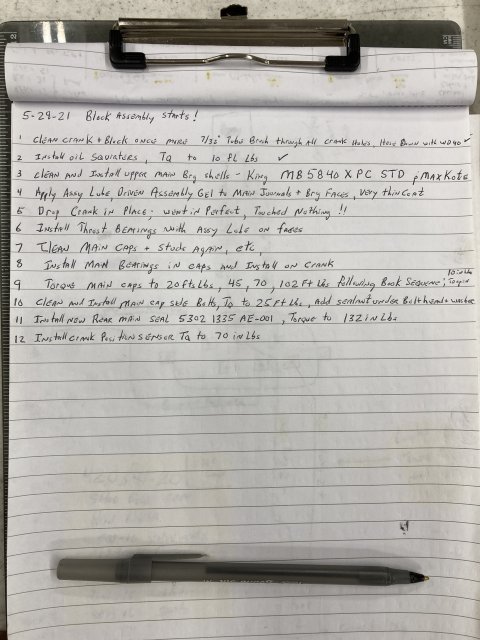 5-29-21 Block Assembly Starts!
1 Clean Crank + Block once more 7/32" Tube Brush through All Crank Holes, Hose Down with WD40 ✓
2 Install oil Squirters, TQ to 10 Ft Lbs ✓
3 Clean and Install upper main Brg shells - King MB5840XPC STD pMAXKote
4 Apply Assy Lube Driven Assembly Gel to Main Journals + Brg Faces, very thin coat
5 Drop Crank in Place; went in Perfect, Touched Nothing!!
6 Install Thrust Bearings with Assy Lube on faces
7 Clean Main Caps + Studs Again, etc,
8 Install Main Bearings in caps and Install on Crank
9 Torque Main caps to 20 Ft Lbs, 45, 70, 102 Ft Lbs following Book Sequence;
10 Clean and Install main cap side Bolts, TQ to 25 Ft Lbs, Add sealant under Bolt heads washer
11 Install new Rear main seal 5302 1335 AE-001, Torque to 132 in Lbs
12 Install crank Position sensor TQ to 70 in Lbs